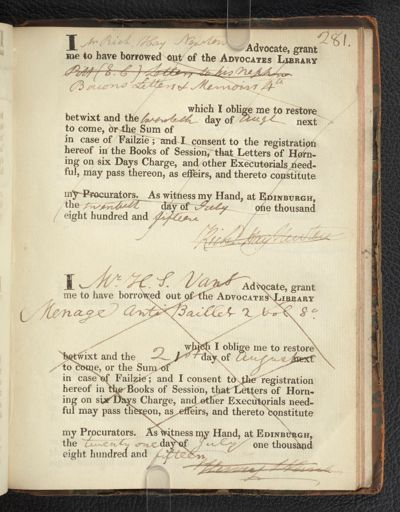 281.
I Mr Rich Hay Newton Advocate, grant
me to have borrowed out of the ADVOCATES LIBRARY
Pitt (E. C.) Letters to his Nephew
Bacon's Letters & Memoirs 4to
which I oblige me to restore
betwixt and the twentieth day of Augt next
to come, or the Sum of
in case of Failzie; and I consent to the registration
hereof in the Books of Session, that Letters of Horn-
ing on six Days Charge, and other Executorials need-
ful, may pass thereon, as effeirs, and thereto constitute
my Procurators. As witness my Hand, at EDINBURGH,
the twentieth day of July one thousand
eight hundred and fifteen
Richd Hay Newton
I Mr. H. S. Vans Advocate, grant
me to have borrowed out of the ADVOCATES LIBRARY
Menage Anti Baillet 2 vol 8o
which I oblige me to restore
betwixt and the 21st day of August next
to come, or the Sum of
in case of Failzie; and I consent to the registration
hereof in the Books of Session, that Letters of Horn-
ing on six Days Charge, and other Executorials need-
ful may pass thereon, as effeirs, and thereto constitute
my Procurators. As witness my Hand, at EDINBURGH,
the twenty one day of July one thousand
eight hundred and fifteen